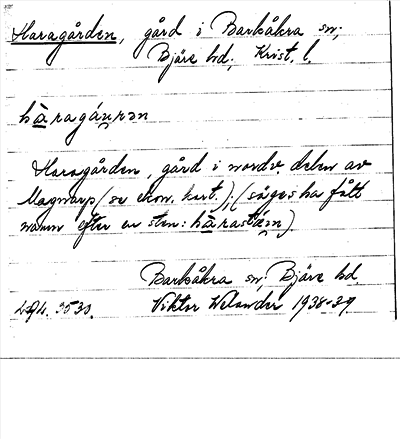 Haragården, gård i Barkåkra sn;
Bjäre hd; Krist. l.
hàragáuṛən
Haragården, gård i nordv. delen av
Magnarp (se ekon. kart.); (säges ha fått
namn efter en sten: hàrastáın).
Barkåkra sn, Bjäre hd.
Viktor Welander 1938-39.